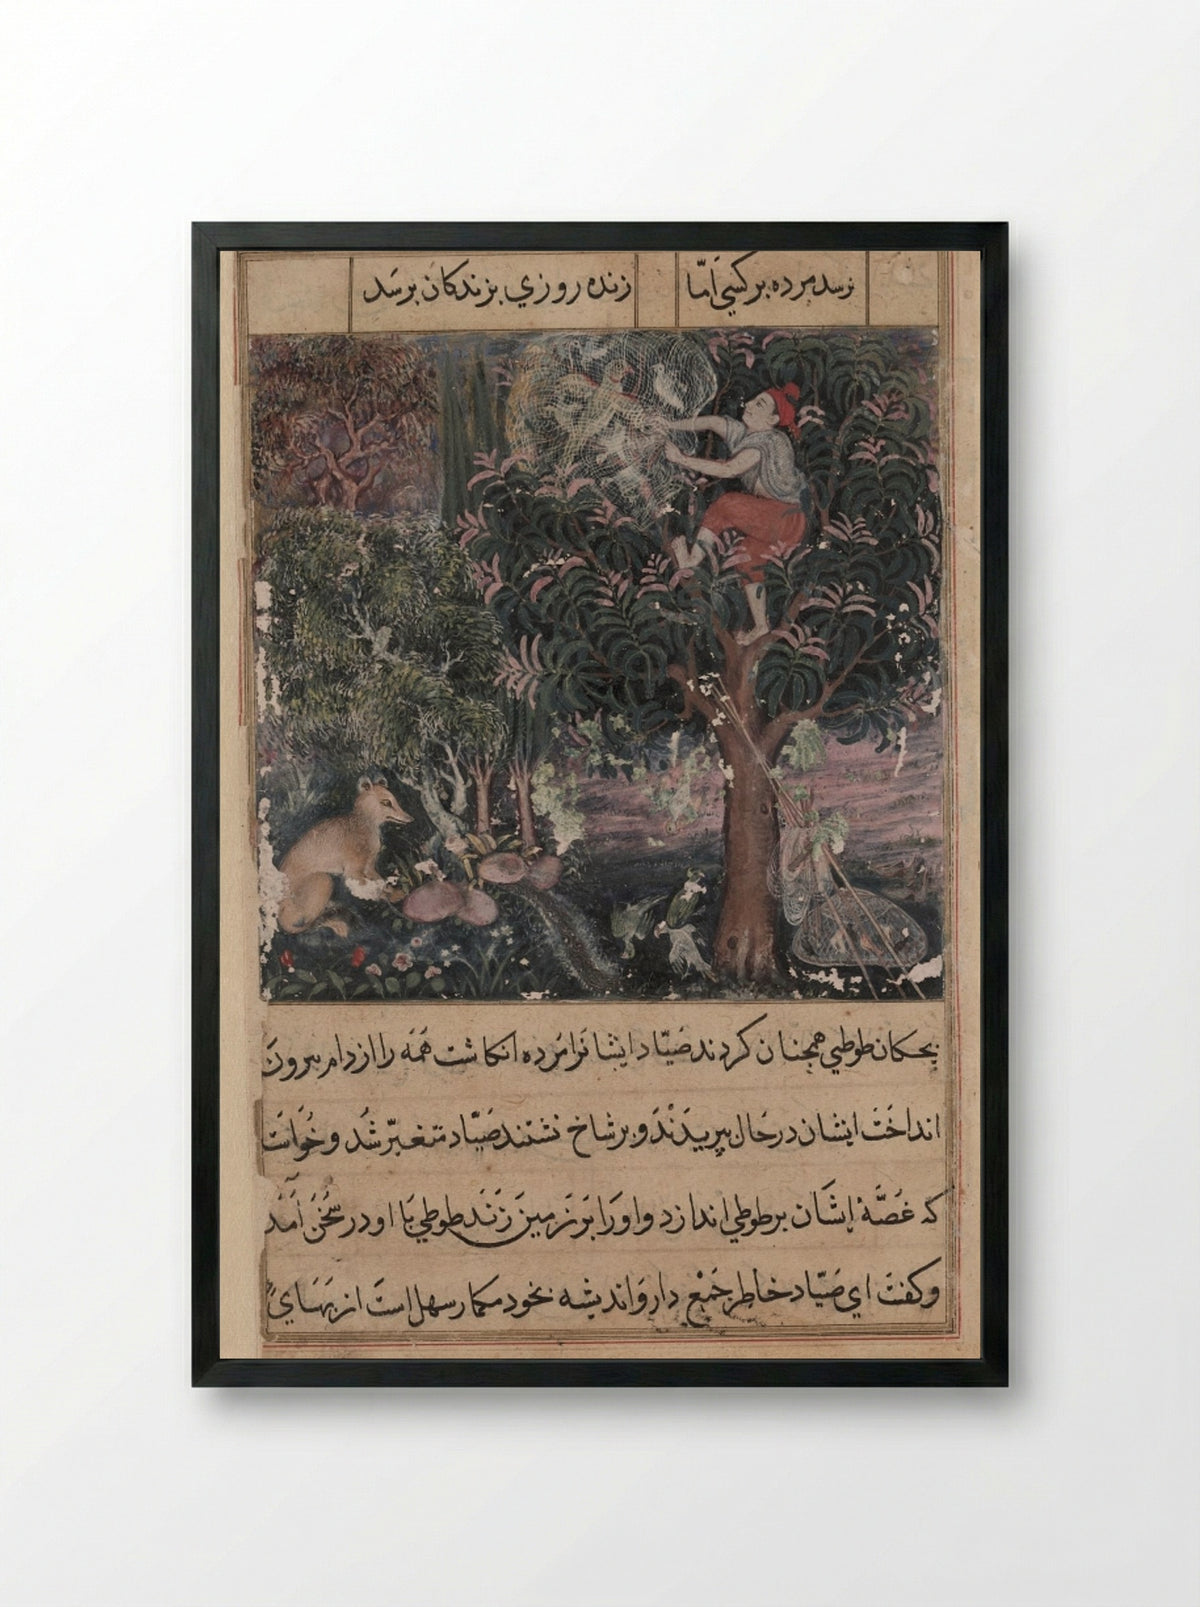 نرسد مرده بر کسی امّا
زنده روزي بزندکان برسد
بچکان طوطي همچنان کردند صیّاد ایشانرا مرده انکاشت همَه را از دام بیرون
انداخت ایشان در حال بپریدند و بر شاخ نشتند صیّاد متغیّر شد و خواست
که غصّۀ ایشان بر طوطي اندازد و او را بر زمین زند طوطي با او در سخن آمد
و کفت اي صیّاد خاطر جمع دار و اندیشه بخود مکمار سهل است از بهاي